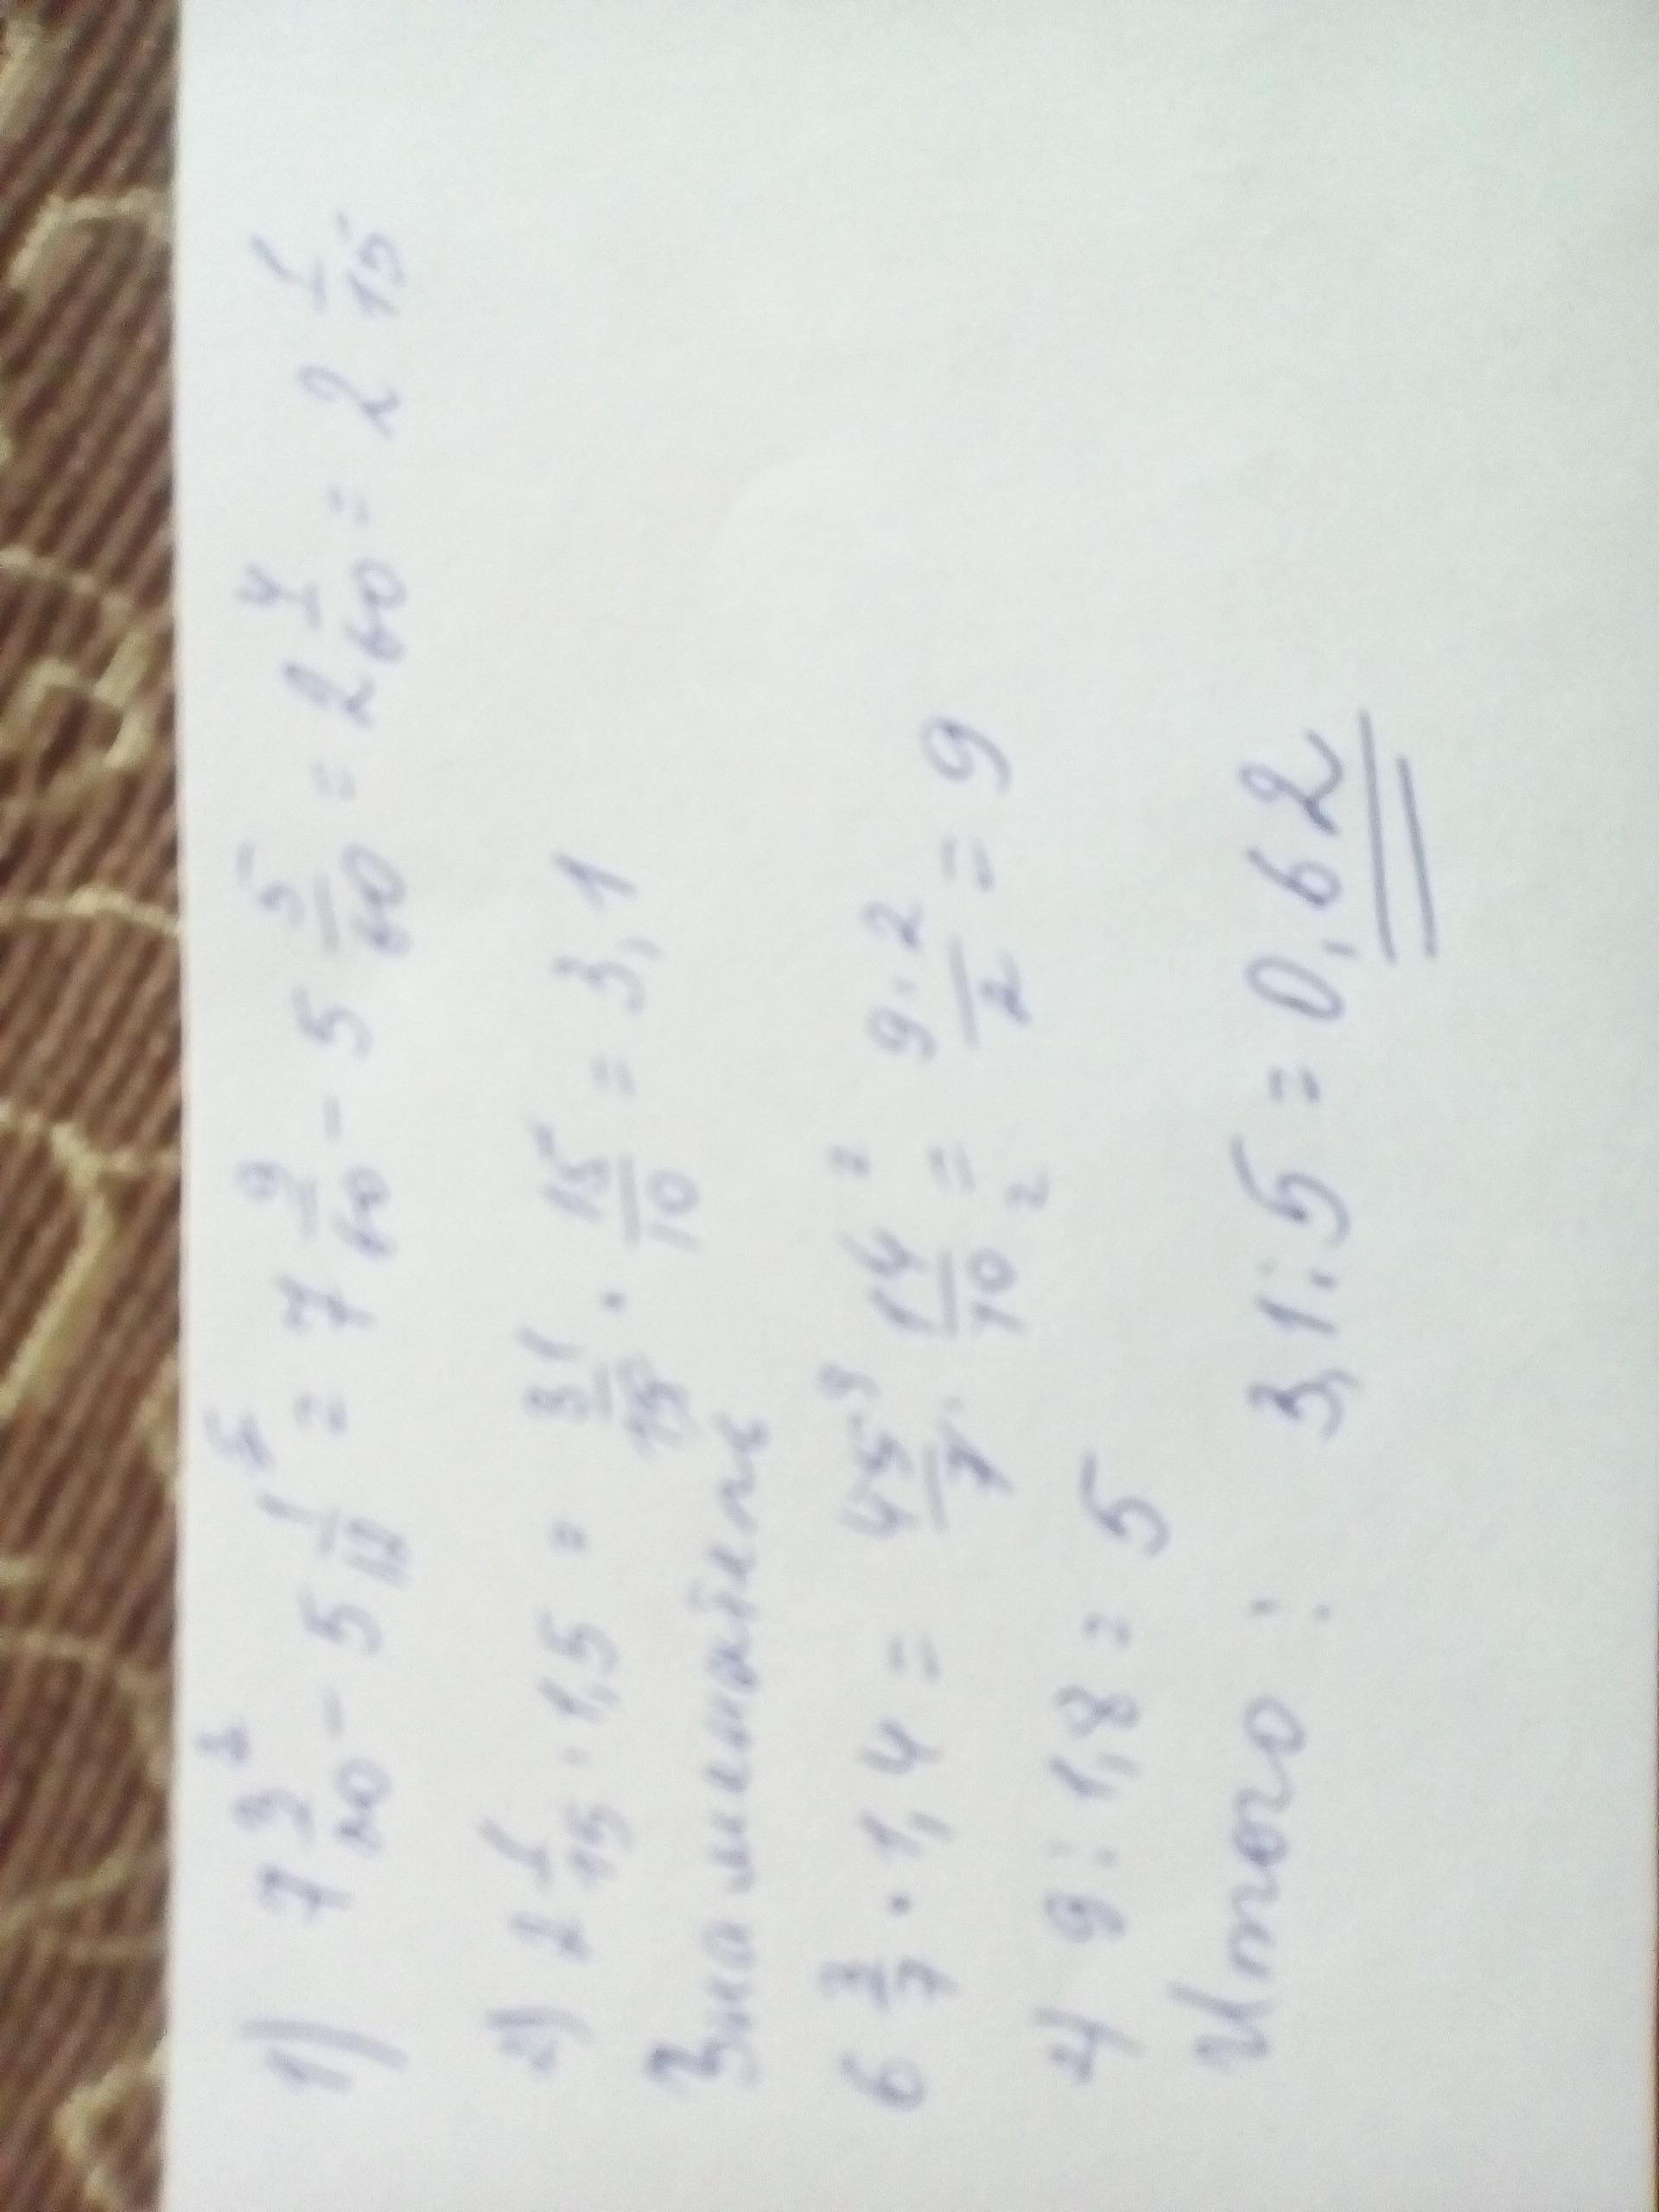 1) 7 3/20 ³ - 5 1/12 ⁵ = 7 9/60 - 5 5/60 = 2 4/60 = 2 1/15
2) 2 1/15 · 1,5 = 31/15 · 15/10 = 3,1
Знаменатель
6 3/7 · 1,4 = 45⁹/7 · 14²/10₂ = 9·2/2 = 9
4 9 : 1,8 = 5
Итого : 3,1 : 5 = 0,62